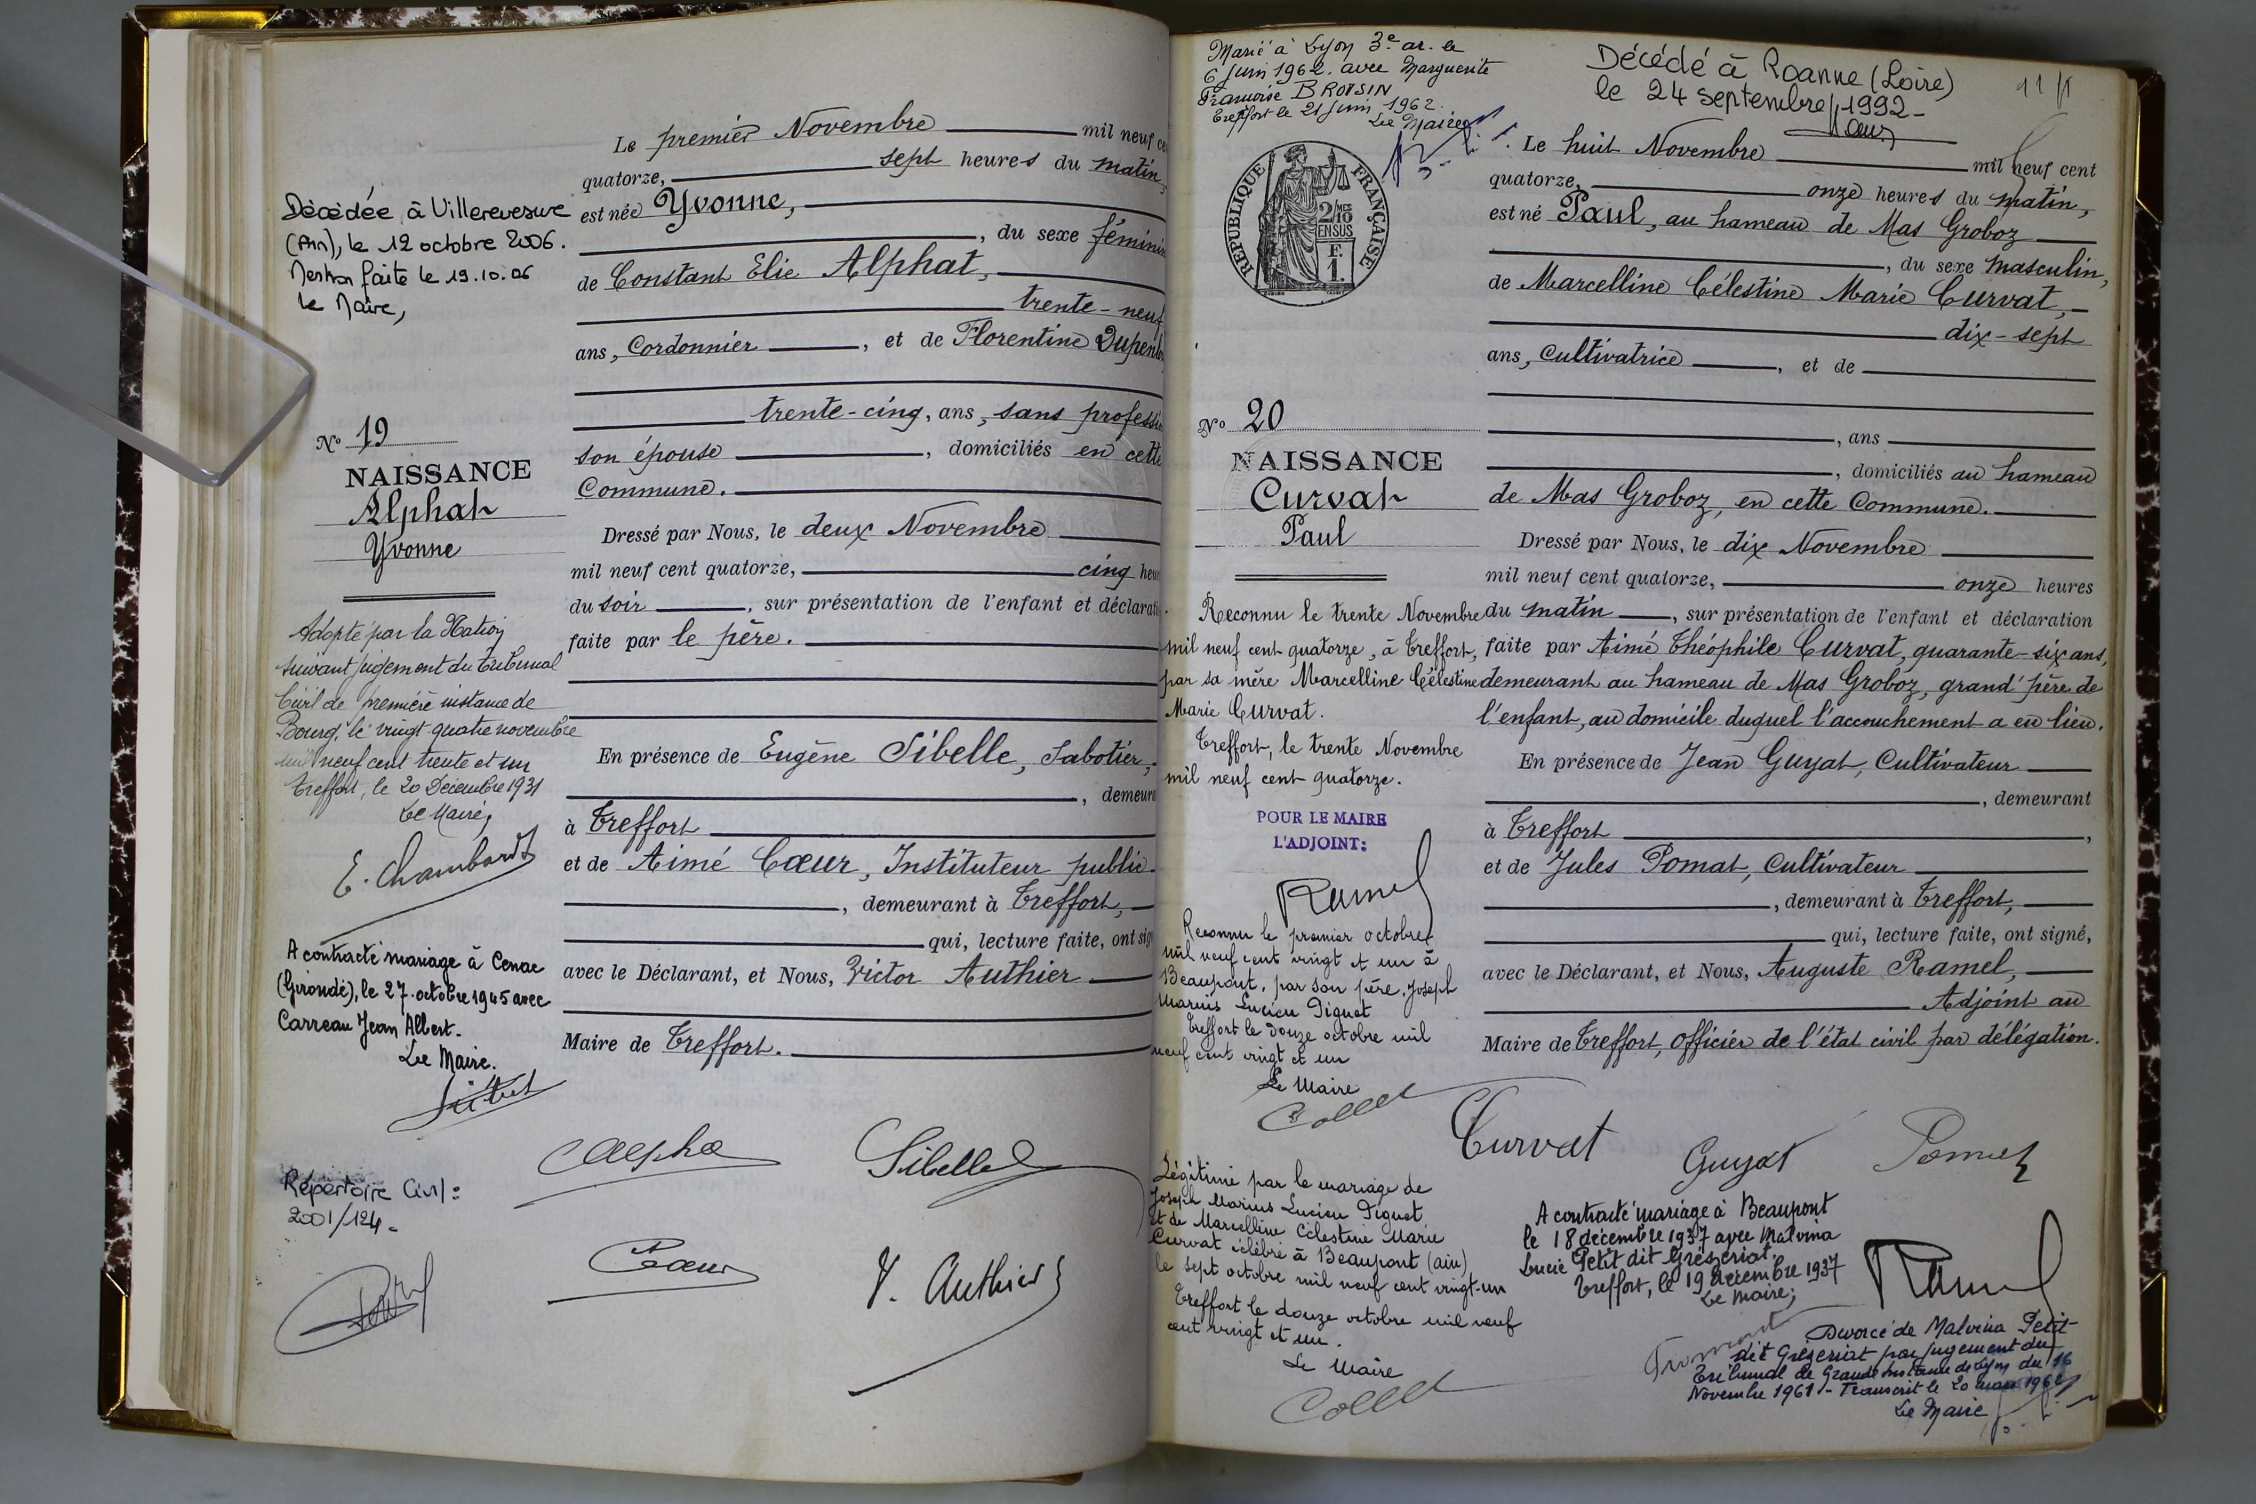 Le premier Novembre mil neuf ce
quatorze, sept heures du matin,
est née Yvonne,
, du sexe féminin
de Constant Elie Alphat,
trente-neuf
ans, Cordonnier, et de Florentine Dupenlo
trente-cinq, ans, sans professio
son épouse, domiciliés en cette
Commune.
Dressé par Nous, le deux Novembre
mil neuf cent quatorze, cinq heu
du soir, sur présentation de l'enfant et déclarati
faite par le père.
En présence de Eugène Sibelle, Sabotier,
, demeura
à Treffort
et de Aimé Cœur, Instituteur public
, demeurant à Treffort,
qui, lecture faite, ont sig
avec le Déclarant, et Nous, Victor Authier
Maire de Treffort.
CAlpha
Sibelle
Cœur
V. Authier
Décédée à Villereversure
(Ain), le 12 octobre 2006.
Mention faite le 19.10.06
Le Maire,
No 19
NAISSANCE
Alphat
Yvonne
Adopté par la Nation
suivant jugement du Tribunal
Civil de première instance de
Bourg, le vingt-quatre novembre
mil neuf cent trente et un
Treffort, le 20 Décembre 1931
Le Maire,
E. Chambard
A contracté mariage à Cenac
(Gironde), le 27 octobre 1945 avec
Carreau Jean Albert.
Le Maire.
Répertoire Civil:
2001/124-
Marié à Lyon 3e ar. le
6 Juin 1962. avec Marguerite
Françoise BROISIN
Treffort le 21 juin 1962.
Le Maire
Décédé à Roanne (Loire)
le 24 septembre 1992-
RÉPUBLIQUE FRANÇAISE
2/10
EN SUS
F.
1.
Le huit Novembre mil neuf cent
quatorze, onze heures du matin,
est né Paul, au hameau de Mas Groboz
, du sexe masculin,
de Marcelline Célestine Marie Curvat,
dix-sept
ans, Cultivatrice, et de
, ans
, domiciliés au hameau
de Mas Groboz, en cette Commune.
Dressé par Nous, le dix Novembre
mil neuf cent quatorze, onze heures
du matin, sur présentation de l'enfant et déclaration
faite par Aimé Théophile Curvat, quarante-six ans,
demeurant au hameau de Mas Groboz, grand'père de
l'enfant, au domicile duquel l'accouchement a eu lieu.
En présence de Jean Guyat, Cultivateur
, demeurant
à Treffort,
et de Jules Pomat, Cultivateur
, demeurant à Treffort,
qui, lecture faite, ont signé,
avec le Déclarant, et Nous, Auguste Ramel,
Adjoint au
Maire de Treffort, Officier de l'état civil par délégation.
Curvat
Guyat
Pomat
Ramel
No 20
NAISSANCE
Curvat
Paul
Reconnu le trente Novembre
mil neuf cent quatorze, à Treffort,
par sa mère Marcelline Célestine
Marie Curvat.
Treffort, le trente Novembre
mil neuf cent quatorze.
POUR LE MAIRE
L'ADJOINT:
Ramel
Reconnu le premier octobre
mil neuf cent vingt et un à
Beaupont, par son père, Joseph
Marius Lucien Piguet
Treffort le douze octobre mil
neuf cent vingt et un
Le Maire
Collet
Légitimé par le mariage de
Joseph Marius Lucien Piguet
et de Marcelline Célestine Marie
Curvat célébré à Beaupont (ain)
le sept octobre mil neuf cent vingt-un
Treffort le douze octobre mil neuf
cent vingt et un.
Le Maire
Collet
A contracté mariage à Beaupont
le 18 décembre 1937 avec Malvina
Lucie Petit dit Grézériat.
Treffort, le 19 décembre 1937
Le Maire;
Divorcé de Malvina Petit
dit Grézeriat par jugement du
Tribunal de Grande Instance de Lyon du 16
Novembre 1961 - Transcrit le 20 mars 1962
Le Maire